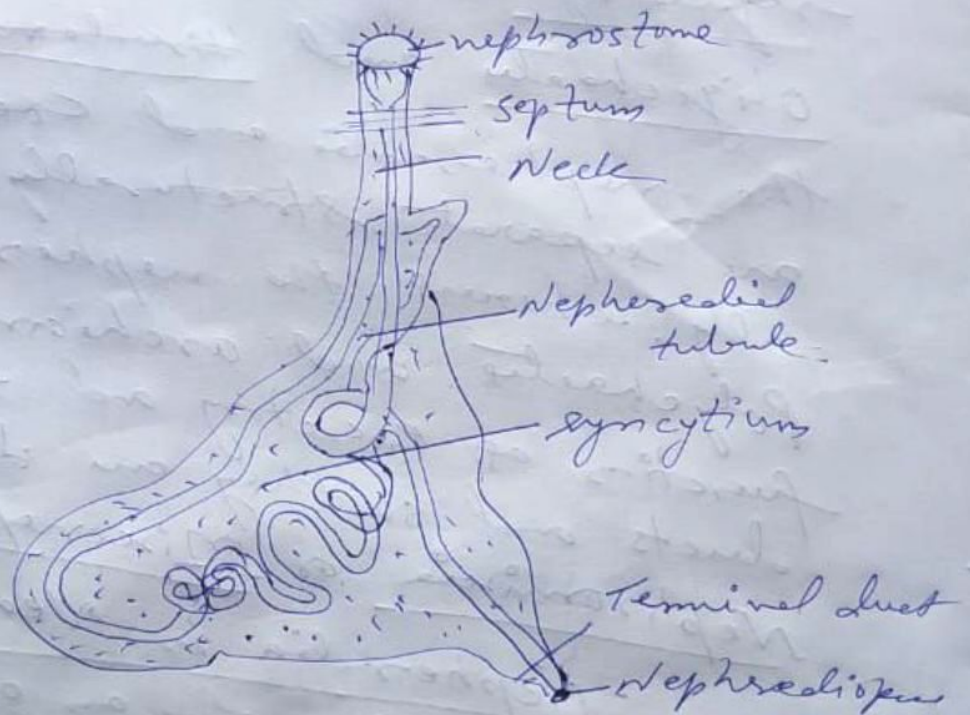 nephrostome
septum
Neck
Nephredial
tubule
syncytium
Terminal duct
Nephrediopore